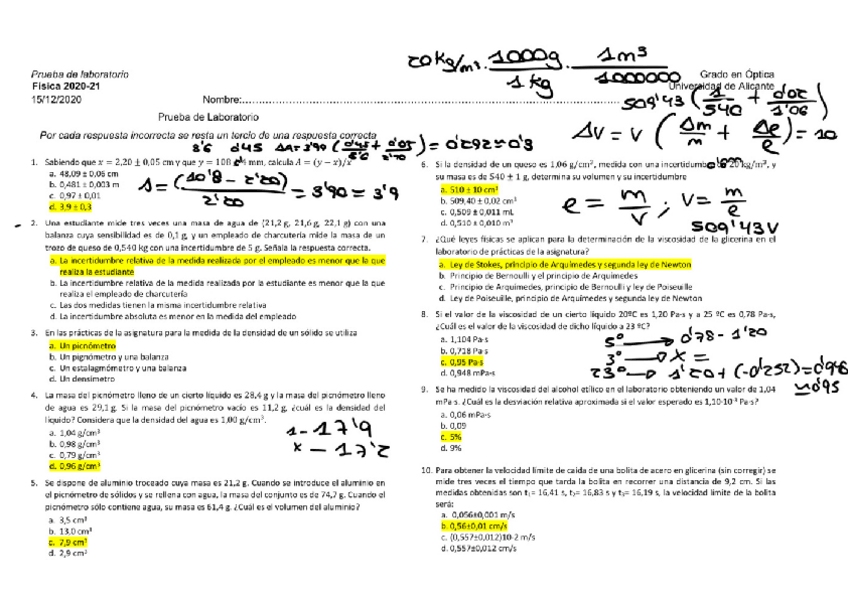 Prueba de laboratorio
Física 2020-21
15/12/2020
Nombre:
Grado en Óptica
Universidad de Alicante
20 Kg/m³ · 1000g / 1 kg · 1m³ / 1000000
509'43 ( 1 / 540 + 0'02 / 1'06 )
ΔV = V ( Δm / m + Δe / e ) = 10
Prueba de Laboratorio
Por cada respuesta incorrecta se resta un tercio de una respuesta correcta
1. Sabiendo que x = 2,20 ± 0,05 cm y que y = 108 mm, calcula A = (y − x)/x
a. 48,09 ± 0,05 cm
b. 0,481 ± 0,003 m
c. 0,97 ± 0,01
d. 3,9 ± 0,3
A = (10'8 - 2'20) / 2'20 = 3'90 = 3'9
2. Una estudiante mide tres veces una masa de agua de (21,2 g, 21,6 g, 22,1 g) con una
balanza cuya sensibilidad es de 0,1 g, y un empleado de charcutería mide la masa de un
trozo de queso de 0,540 kg con una incertidumbre de 5 g. Señala la respuesta correcta.
a. La incertidumbre relativa de la medida realizada por el empleado es menor que la que
realiza la estudiante
b. La incertidumbre relativa de la medida realizada por la estudiante es menor que la que
realiza el empleado de charcutería
c. Las dos medidas tienen la misma incertidumbre relativa
d. La incertidumbre absoluta es menor en la medida del empleado
3. En las prácticas de la asignatura para la medida de la densidad de un sólido se utiliza
a. Un picnómetro
b. Un pignómetro y una balanza
c. Un estalagmómetro y una balanza
d. Un densímetro
4. La masa del picnómetro lleno de un cierto líquido es 28,4 g y la masa del picnómetro lleno
de agua es 29,1 g. Si la masa del picnómetro vacío es 11,2 g, ¿cuál es la densidad del
líquido? Considera que la densidad del agua es 1,00 g/cm³.
a. 1,04 g/cm³
b. 0,98 g/cm³
c. 0,79 g/cm³
d. 0,96 g/cm³
1 - 17'9
x - 17'2
5. Se dispone de aluminio troceado cuya masa es 21,2 g. Cuando se introduce el aluminio en
el picnómetro de sólidos y se rellena con agua, la masa del conjunto es de 74,7 g. Cuando el
picnómetro sólo contiene agua, su masa es 61,4 g. ¿Cuál es el volumen del aluminio?
a. 3,5 cm³
b. 13,0 cm³
c. 7,9 cm³
d. 2,9 cm³
6. Si la densidad de un queso es 1,06 g/cm³, medida con una incertidumbre de 20 kg/m³, y
su masa es de 540 ± 1 g, determina su volumen y su incertidumbre
a. 510 ± 10 cm³
b. 509,40 ± 0,02 cm³
c. 0,509 ± 0,011 mL
d. 0,510 ± 0,010 m³
e = m / V ; V = m / e
509'43V
7. ¿Qué leyes físicas se aplican para la determinación de la viscosidad de la glicerina en el
laboratorio de prácticas de la asignatura?
a. Ley de Stokes, principio de Arquímedes y segunda ley de Newton
b. Principio de Bernoulli y el principio de Arquímedes
c. Principio de Arquímedes, principio de Bernoulli y ley de Poiseuille
d. Ley de Poiseuille, principio de Arquímedes y segunda ley de Newton
8. Si el valor de la viscosidad de un cierto líquido 20ºC es 1,20 Pa·s y a 25 ºC es 0,78 Pa·s,
¿Cuál es el valor de la viscosidad de dicho líquido a 23 ºC?
a. 1,104 Pa·s
b. 0,718 Pa·s
c. 0,95 Pa·s
d. 0,948 mPa·s
5º → 0'78 - 1'20
3º → x =
23º → 1'20 + (-0'252) = 0'948
≈ 0'95
9. Se ha medido la viscosidad del alcohol etílico en el laboratorio obteniendo un valor de 1,04
mPa s. ¿Cuál es la desviación relativa aproximada si el valor esperado es 1,10·10⁻³ Pa·s?
a. 0,06 mPa·s
b. 0,09
c. 5%
d. 9%
10. Para obtener la velocidad límite de caída de una bolita de acero en glicerina (sin corregir) se
mide tres veces el tiempo que tarda la bolita en recorrer una distancia de 9,2 cm. Si las
medidas obtenidas son t₁= 16,41 s, t₂= 16,83 s y t₃= 16,19 s, la velocidad límite de la bolita
será:
a. 0,056±0,001 m/s
b. 0,56±0,01 cm/s
c. (0,557±0,012)10-2 m/s
d. 0,557±0,012 cm/s